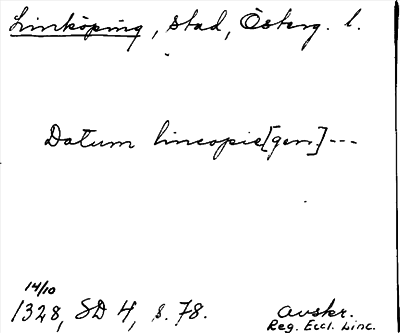 Linköping, stad, Österg. l.
Datum lincopie[gen]---
14/10
1328, SD 4, s. 78.
avskr.
Reg. Eccl. Linc.